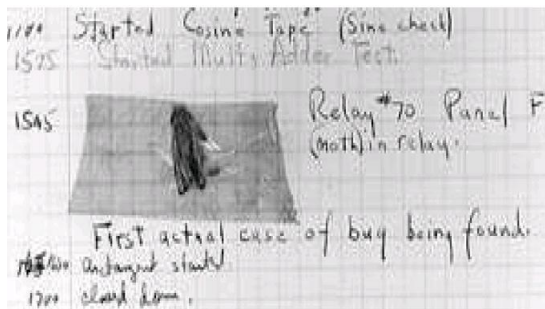 Started Cosine Tape (Sine check)
1525 Started Mult+ Adder Test.
1545 Relay #70 Panel F
(moth) in relay.
First actual case of bug being found.
started.
1700 closed down.